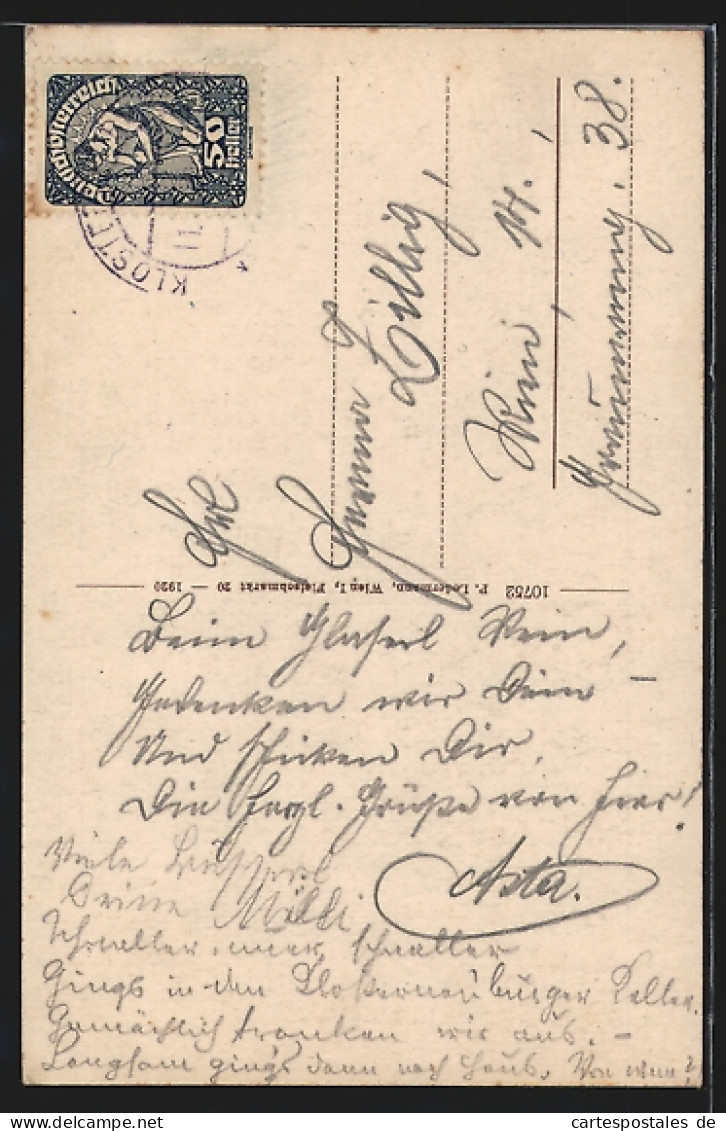 Deutschösterreich
50
Heller
KLOSTE
11
Frl
Zillig,
Wien, 14.,
38.
10752 P. Ledermann, Wien I, Fleischmarkt 20 — 1920
Beim Glaserl Wein,
Gedenken wir Dein —
Und schicken Dir,
Die herzl. Grüße von hier!
Asta.
Viele Busserl
Deine Milli
Schneller, immer schneller
Gings in den Klosterneuburger Keller.
Gemächlich tranken wir aus. —
Langsam gings dann nach Haus. Von wem?
www.oldthing.net
cartespostales.de